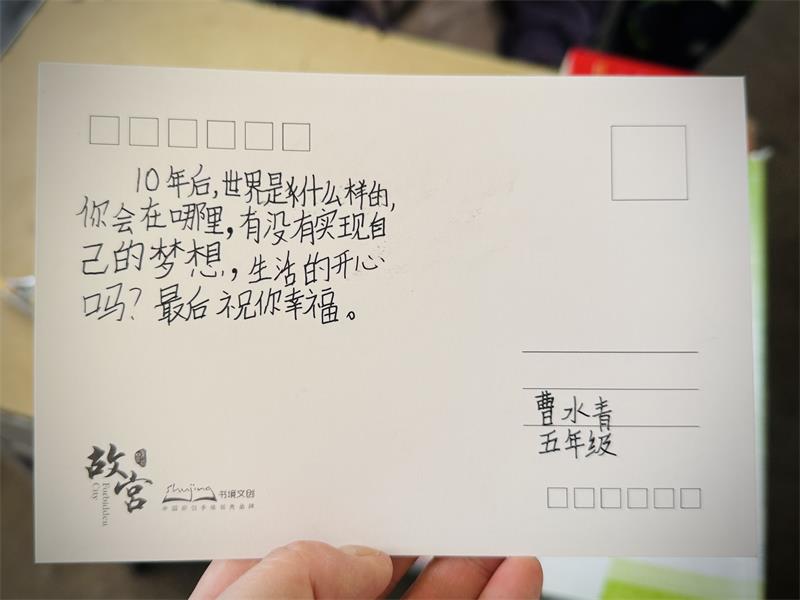 10年后,世界是什么样的,
你会在哪里,有没有实现自
己的梦想,生活的开心
吗?最后祝你幸福。
曹水青
五年级
故宫
Forbidden
City
Shujing 书境文创